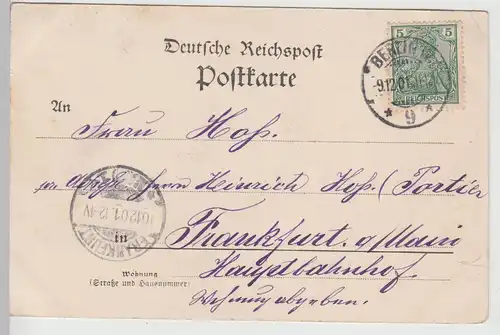 Deutsche Reichspost
Postkarte
5
REICHSPOST
BERLIN
9.12.01
9
An
Frau Hoss.
Herrn Heinrich Hoss. (Portier
FRANKFURT
10.12.01. 12-1V
in Frankfurt. a/Main
Hauptbahnhof.
Wohnung
(Straße und Hausnummer)
Wohnung abgeben.